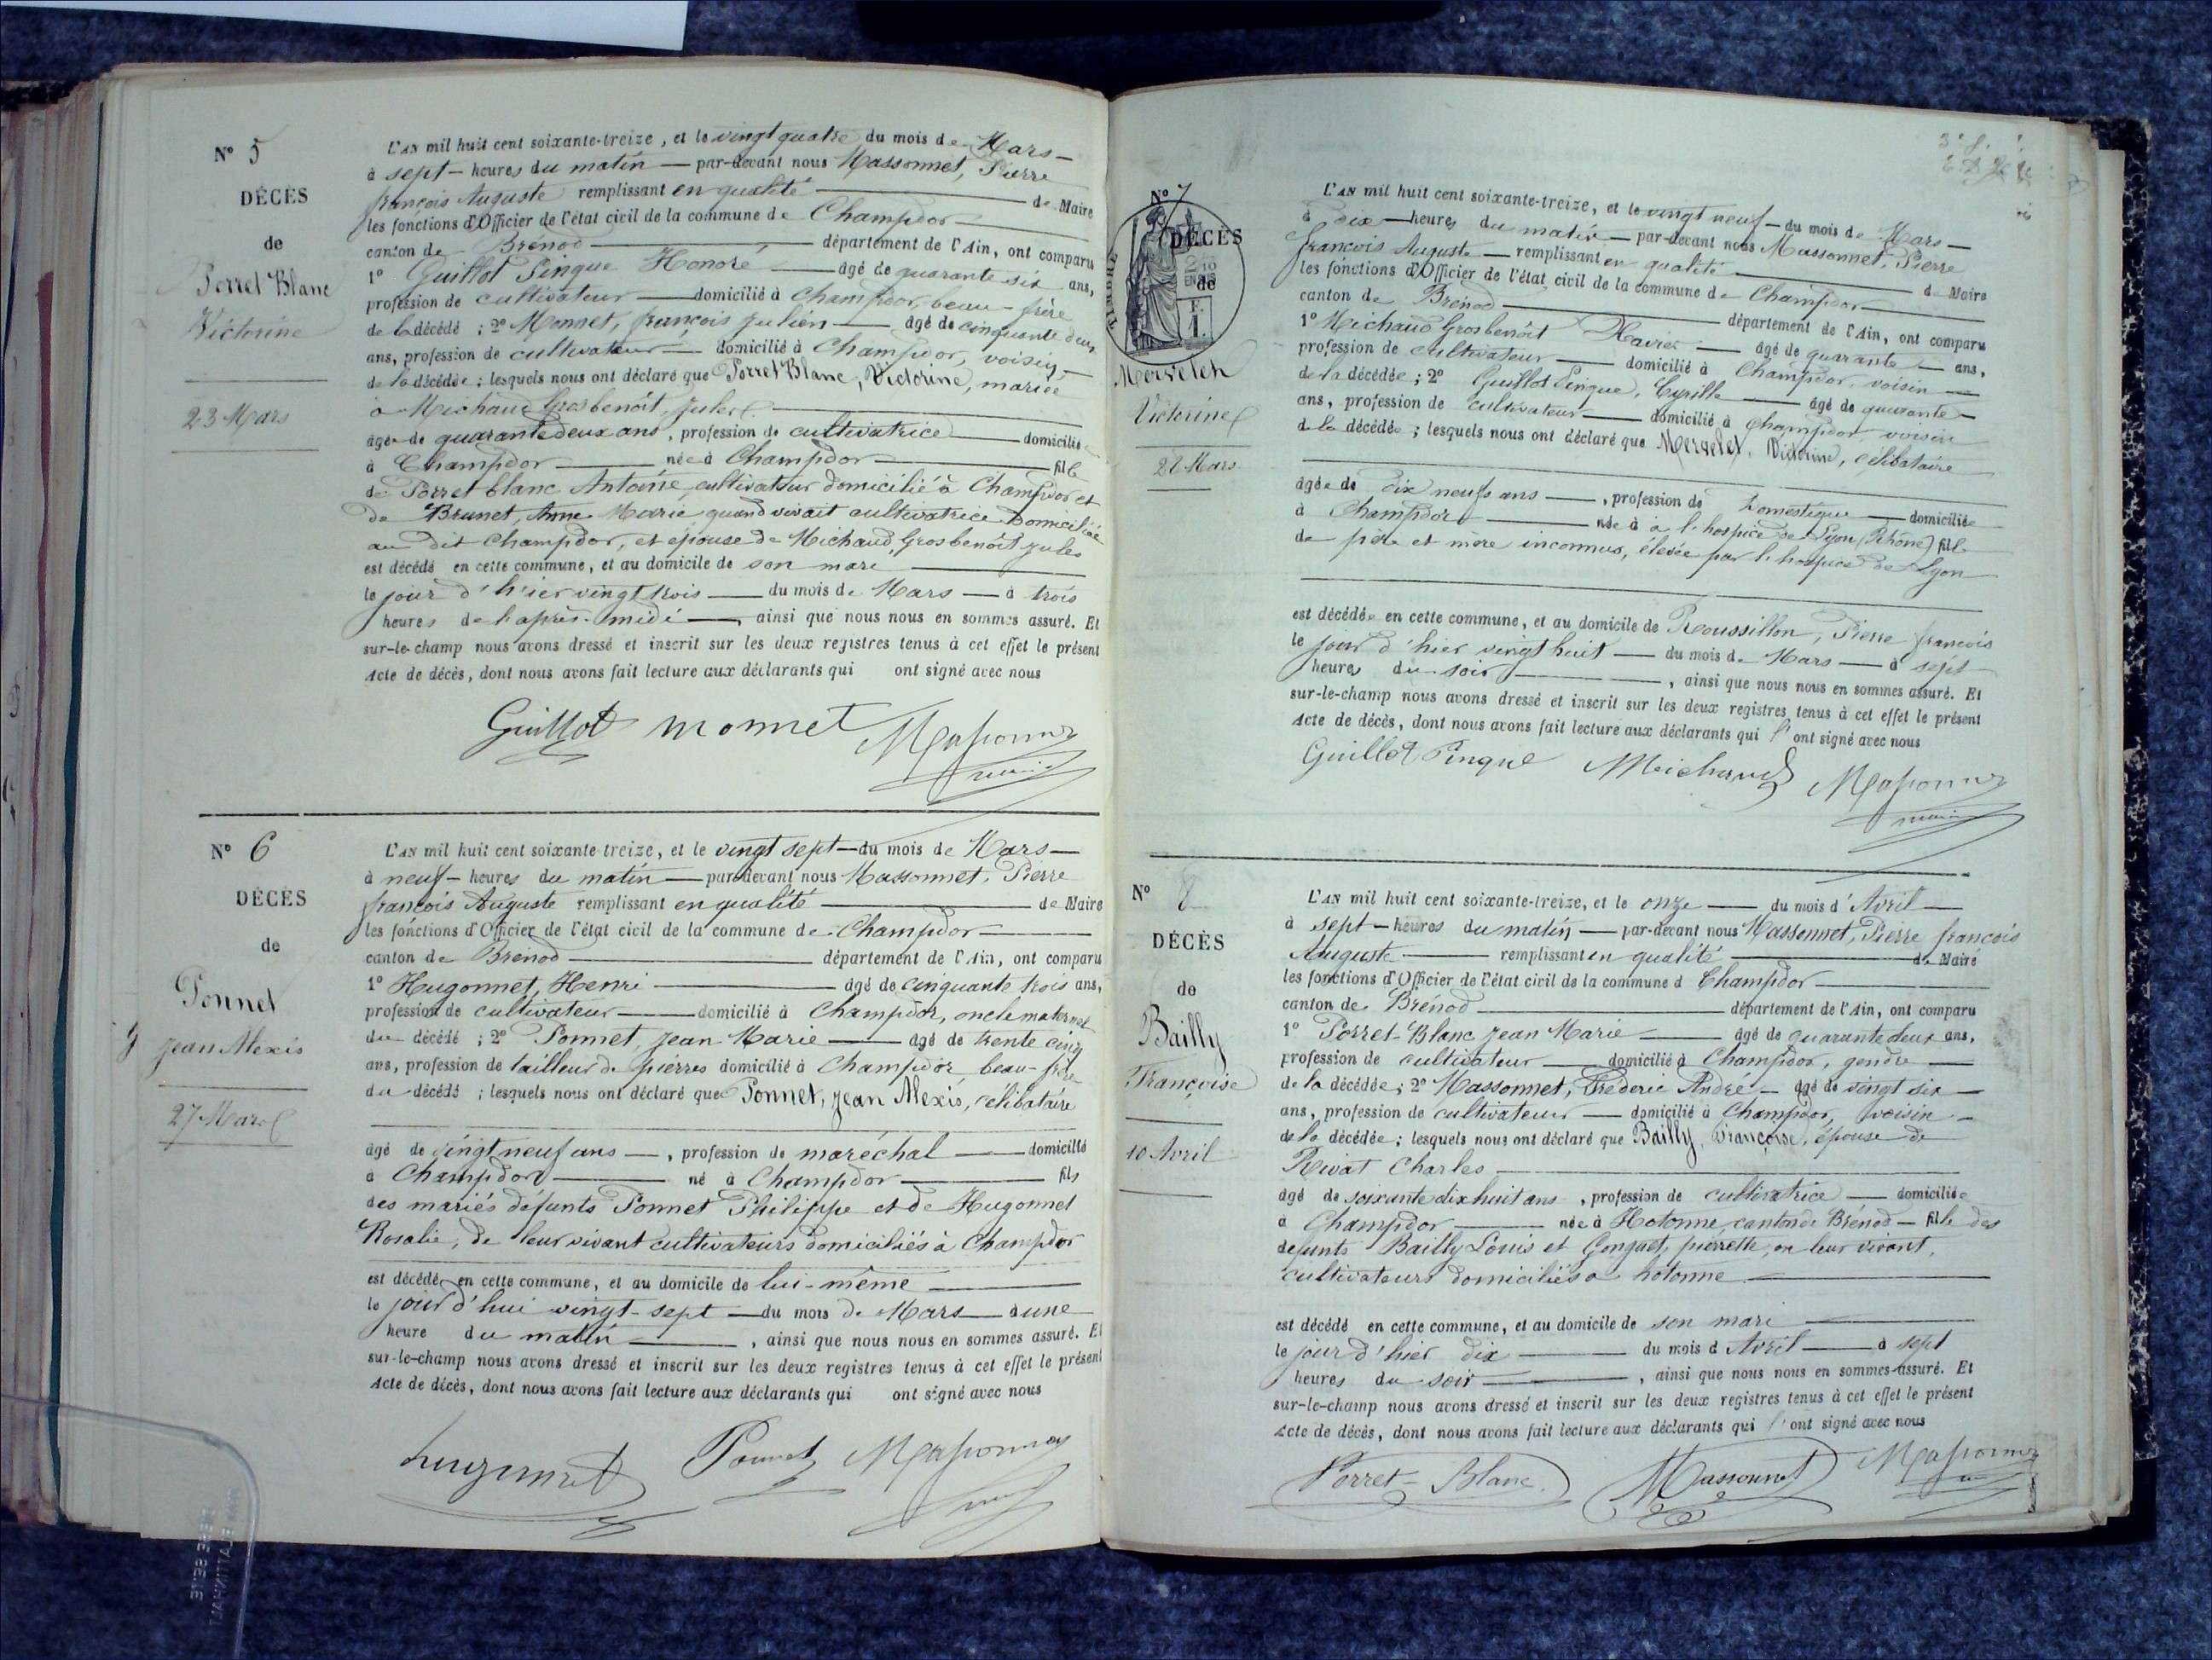 N° 5
DÉCÈS
de
Porret Blanc
Victorine
23 Mars
L'AN mil huit cent soixante-treize, et le vingt quatre du mois de Mars
à sept heures du matin par-devant nous Massonnet, Pierre
françois Auguste remplissant en qualité de Maire
les fonctions d'Officier de l'état civil de la commune de Champdor
canton de Brénod département de l'Ain, ont comparu
1° Guillot Pingue Honoré âgé de quarante six ans,
profession de cultivateur domicilié à Champdor, beau-frère
de la décédé ; 2° Monnet, françois julien âgé de cinquante deux
ans, profession de cultivateur domicilié à Champdor, voisin
de la décédée ; lesquels nous ont déclaré que Porret Blanc, Victorine, mariée
à Michaud Grosbenoit, jules
âgée de quarante deux ans, profession de cultivatrice domiciliée
à Champdor née à Champdor fille
de Porret blanc Antoine, cultivateur domicilié à Champdor et
de Brunet, Anne Marie quand vivait cultivatrice domiciliée
au dit Champdor, et épouse de Michaud, Grosbenoit jules
est décédé en cette commune, et au domicile de son mari
le jour d'hier vingt trois du mois de Mars à trois
heures de l'après-midi, ainsi que nous nous en sommes assuré. Et
sur-le-champ nous avons dressé et inscrit sur les deux registres tenus à cet effet le présent
Acte de décès, dont nous avons fait lecture aux déclarants qui ont signé avec nous
Guillot Monnet Massonnet
maire
N° 6
DÉCÈS
de
Ponnet
jean Alexis
27 Mars
L'AN mil huit cent soixante-treize, et le vingt sept du mois de Mars
à neuf heures du matin par-devant nous Massonnet, Pierre
françois Auguste remplissant en qualité de Maire
les fonctions d'Officier de l'état civil de la commune de Champdor
canton de Brénod département de l'Ain, ont comparu
1° Hugonnet, Henri âgé de cinquante trois ans,
profession de cultivateur domicilié à Champdor, oncle maternel
du décédé ; 2° Ponnet, jean Marie âgé de trente cinq
ans, profession de tailleur de pierres domicilié à Champdor beau-frère
du décédé ; lesquels nous ont déclaré que Ponnet, jean Alexis, célibataire
âgé de vingt neuf ans, profession de maréchal domicilié
à Champdor né à Champdor fils
des mariés défunts Ponnet Philippe et de Hugonnet
Rosalie, de leur vivant cultivateurs domiciliés à Champdor
est décédé en cette commune, et au domicile de lui-même
le jour d'hui vingt-sept du mois de Mars à une
heure du matin, ainsi que nous nous en sommes assuré. Et
sur-le-champ nous avons dressé et inscrit sur les deux registres tenus à cet effet le présent
Acte de décès, dont nous avons fait lecture aux déclarants qui ont signé avec nous
hugonnet Ponnet Massonnet
N° 7
DÉCÈS
de
TIMBRE
Mervelet
Victorine
28 Mars
L'AN mil huit cent soixante-treize, et le vingt neuf du mois de Mars
à dix heures du matin par-devant nous Massonnet, Pierre
françois Auguste remplissant en qualité de Maire
les fonctions d'Officier de l'état civil de la commune de Champdor
canton de Brénod département de l'Ain, ont comparu
1° Michaud Grosbenoit Xavier âgé de quarante ans,
profession de cultivateur domicilié à Champdor, voisin
de la décédée ; 2° Guillot Pingue, Cyrille âgé de quarante
ans, profession de cultivateur domicilié à Champdor voisin
de la décédée ; lesquels nous ont déclaré que Mervelet, Victorine, célibataire
âgée de dix neuf ans, profession de Domestique domiciliée
à Champdor née à a l'hospice de Lyon (Rhône) fille
de père et mère inconnus, élevée par l'hospice de Lyon
est décédée en cette commune, et au domicile de Roussillon, Pierre françois
le jour d'hier vingt huit du mois de Mars à sept
heures du soir, ainsi que nous nous en sommes assuré. Et
sur-le-champ nous avons dressé et inscrit sur les deux registres tenus à cet effet le présent
Acte de décès, dont nous avons fait lecture aux déclarants qui l'ont signé avec nous
Guillot Pingue Michaud Massonnet
maire
N° 8
DÉCÈS
de
Bailly
Françoise
10 Avril
L'AN mil huit cent soixante-treize, et le onze du mois d'Avril
à sept heures du matin par-devant nous Massonnet, Pierre françois
Auguste remplissant en qualité de Maire
les fonctions d'Officier de l'état civil de la commune d Champdor
canton de Brénod département de l'Ain, ont comparu
1° Porret-Blanc jean Marie âgé de quarante deux ans,
profession de cultivateur domicilié à Champdor, gendre
de la décédée ; 2° Massonnet, Fréderic André âgé de vingt six
ans, profession de cultivateur domicilié à Champdor, voisin
de la décédée ; lesquels nous ont déclaré que Bailly, Françoise, épouse de
Rivat Charles
âgé de soixante dix huit ans, profession de cultivatrice domiciliée
à Champdor née à Hotonne, canton de Brénod fille des
defunts Bailly Louis et Gonguet, pierrette, en leur vivant,
cultivateurs domiciliés a hotonne
est décédé en cette commune, et au domicile de son mari
le jour d'hier dix du mois d Avril à sept
heures du soir, ainsi que nous nous en sommes assuré. Et
sur-le-champ nous avons dressé et inscrit sur les deux registres tenus à cet effet le présent
Acte de décès, dont nous avons fait lecture aux déclarants qui l'ont signé avec nous
Porret-Blanc Massonnet Massonnet